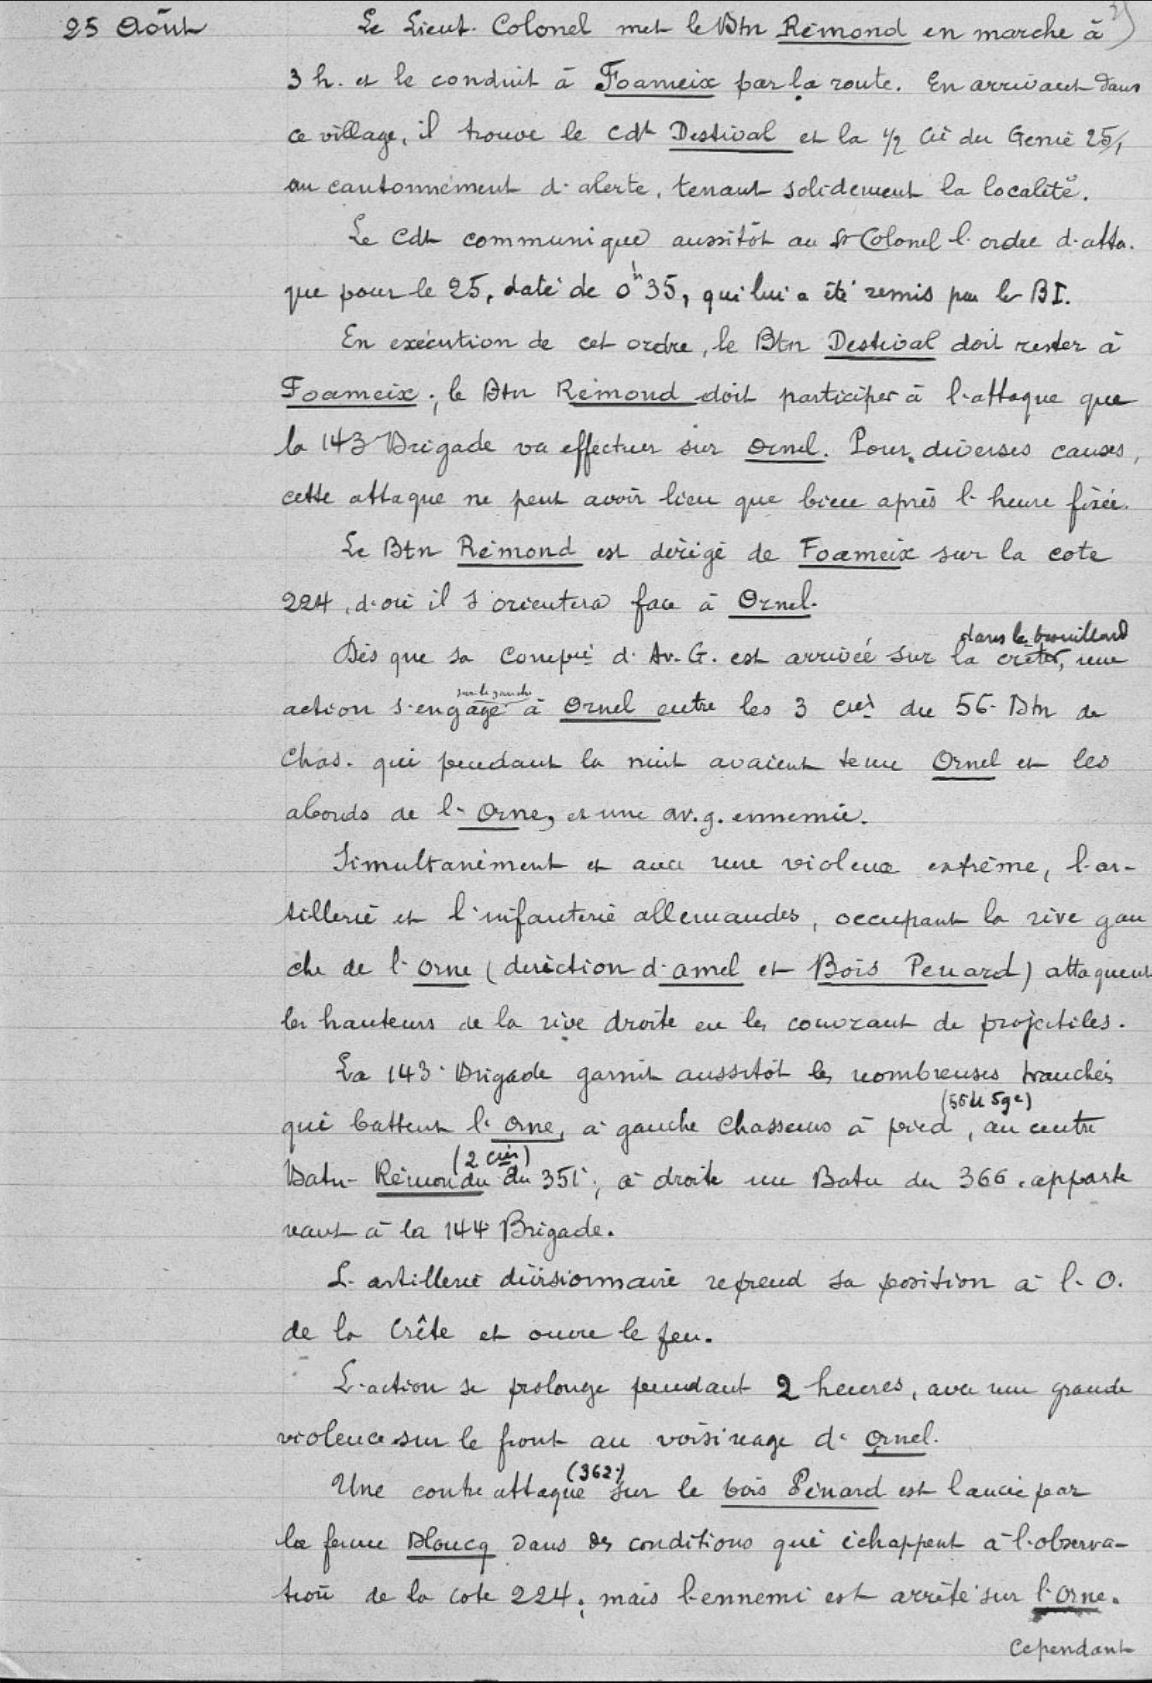 25 Août Le Lieut. Colonel met le Btn Rémond en marche à
3 h. et le conduit à Foameix par la route. En arrivant dans
ce village, il trouve le Cdt Destival et la 1/2 Cie du Génie 25/1
au cantonnement d'alerte, tenant solidement la localité.
Le Cdt communique aussitôt au Lt Colonel l'ordre d'atta-
que pour le 25, daté de 0h35, qui lui a été remis par le BI.
En exécution de cet ordre, le Btn Destival doit rester à
Foameix ; le Btn Rémond doit participer à l'attaque que
la 143e Brigade va effectuer sur Ornel. Pour diverses causes,
cette attaque ne peut avoir lieu que bien après l'heure fixée.
Le Btn Rémond est dirigé de Foameix sur la cote
224, d'où il s'orientera face à Ornel.
dans le brouillard
Dès que sa Compie d'Av. G. est arrivée sur la crête, une
sur la gauche
action s'engage à Ornel entre les 3 Cies du 56e Btn de
Chas. qui pendant la nuit avaient tenu Ornel et les
abords de l'Orne, et une av. g. ennemie.
Simultanément et avec une violence extrême, l'ar-
tillerie et l'infanterie allemandes, occupant la rive gau
che de l'Orne (direction d'amel et Bois Penard) attaquent
les hauteurs de la rive droite en les couvrant de projectiles.
La 143e Brigade garnit aussitôt les nombreuses tranchées
(56 et 59e)
qui battent l'Orne, à gauche Chasseurs à pied, au centre
(2 Cies)
Batn Rémond du du 351e, à droite un Batn du 366e apparte
nant à la 144e Brigade.
L'artillerie divisionnaire reprend sa position à l'O.
de la Crête et ouvre le feu.
L'action se prolonge pendant 2 heures, avec une grande
violence sur le front au voisinage d'Ornel.
(362e)
Une contre attaque sur le bois Pénard est lancée par
la ferme Bloucq dans des conditions qui échappent à l'observa-
tion de la cote 224 ; mais l'ennemi est arrêté sur l'Orne.
Cependant